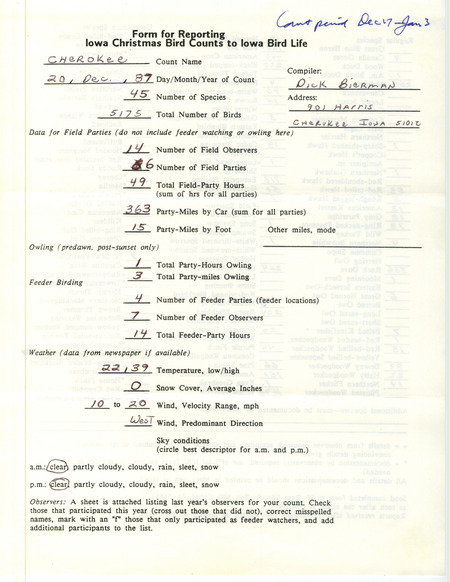 Count period Dec 17-Jan 3
Form for Reporting
Iowa Christmas Bird Counts to Iowa Bird Life
CHEROKEE Count Name
20, Dec. , 87 Day/Month/Year of Count
Compiler:
DICK BIERMAN
45 Number of Species
Address:
901 HARRIS
5175 Total Number of Birds
CHEROKEE IOWA 51012
Data for Field Parties (do not include feeder watching or owling here)
14 Number of Field Observers
6 Number of Field Parties
49 Total Field-Party Hours
(sum of hrs for all parties)
363 Party-Miles by Car (sum for all parties)
15 Party-Miles by Foot Other miles, mode
Owling (predawn, post-sunset only)
1 Total Party-Hours Owling
3 Total Party-miles Owling
Feeder Birding
4 Number of Feeder Parties (feeder locations)
7 Number of Feeder Observers
14 Total Feeder-Party Hours
Weather (data from newspaper if available)
22, 39 Temperature, low/high
0 Snow Cover, Average Inches
10 to 20 Wind, Velocity Range, mph
WesT Wind, Predominant Direction
Sky conditions
(circle best descriptor for a.m. and p.m.)
a.m.: clear, partly cloudy, cloudy, rain, sleet, snow
p.m.: clear, partly cloudy, cloudy, rain, sleet, snow
Observers: A sheet is attached listing last year's observers for your count. Check
those that participated this year (cross out those that did not), correct misspelled
names, mark with an "f" those that only participated as feeder watchers, and add
additional participants to the list.